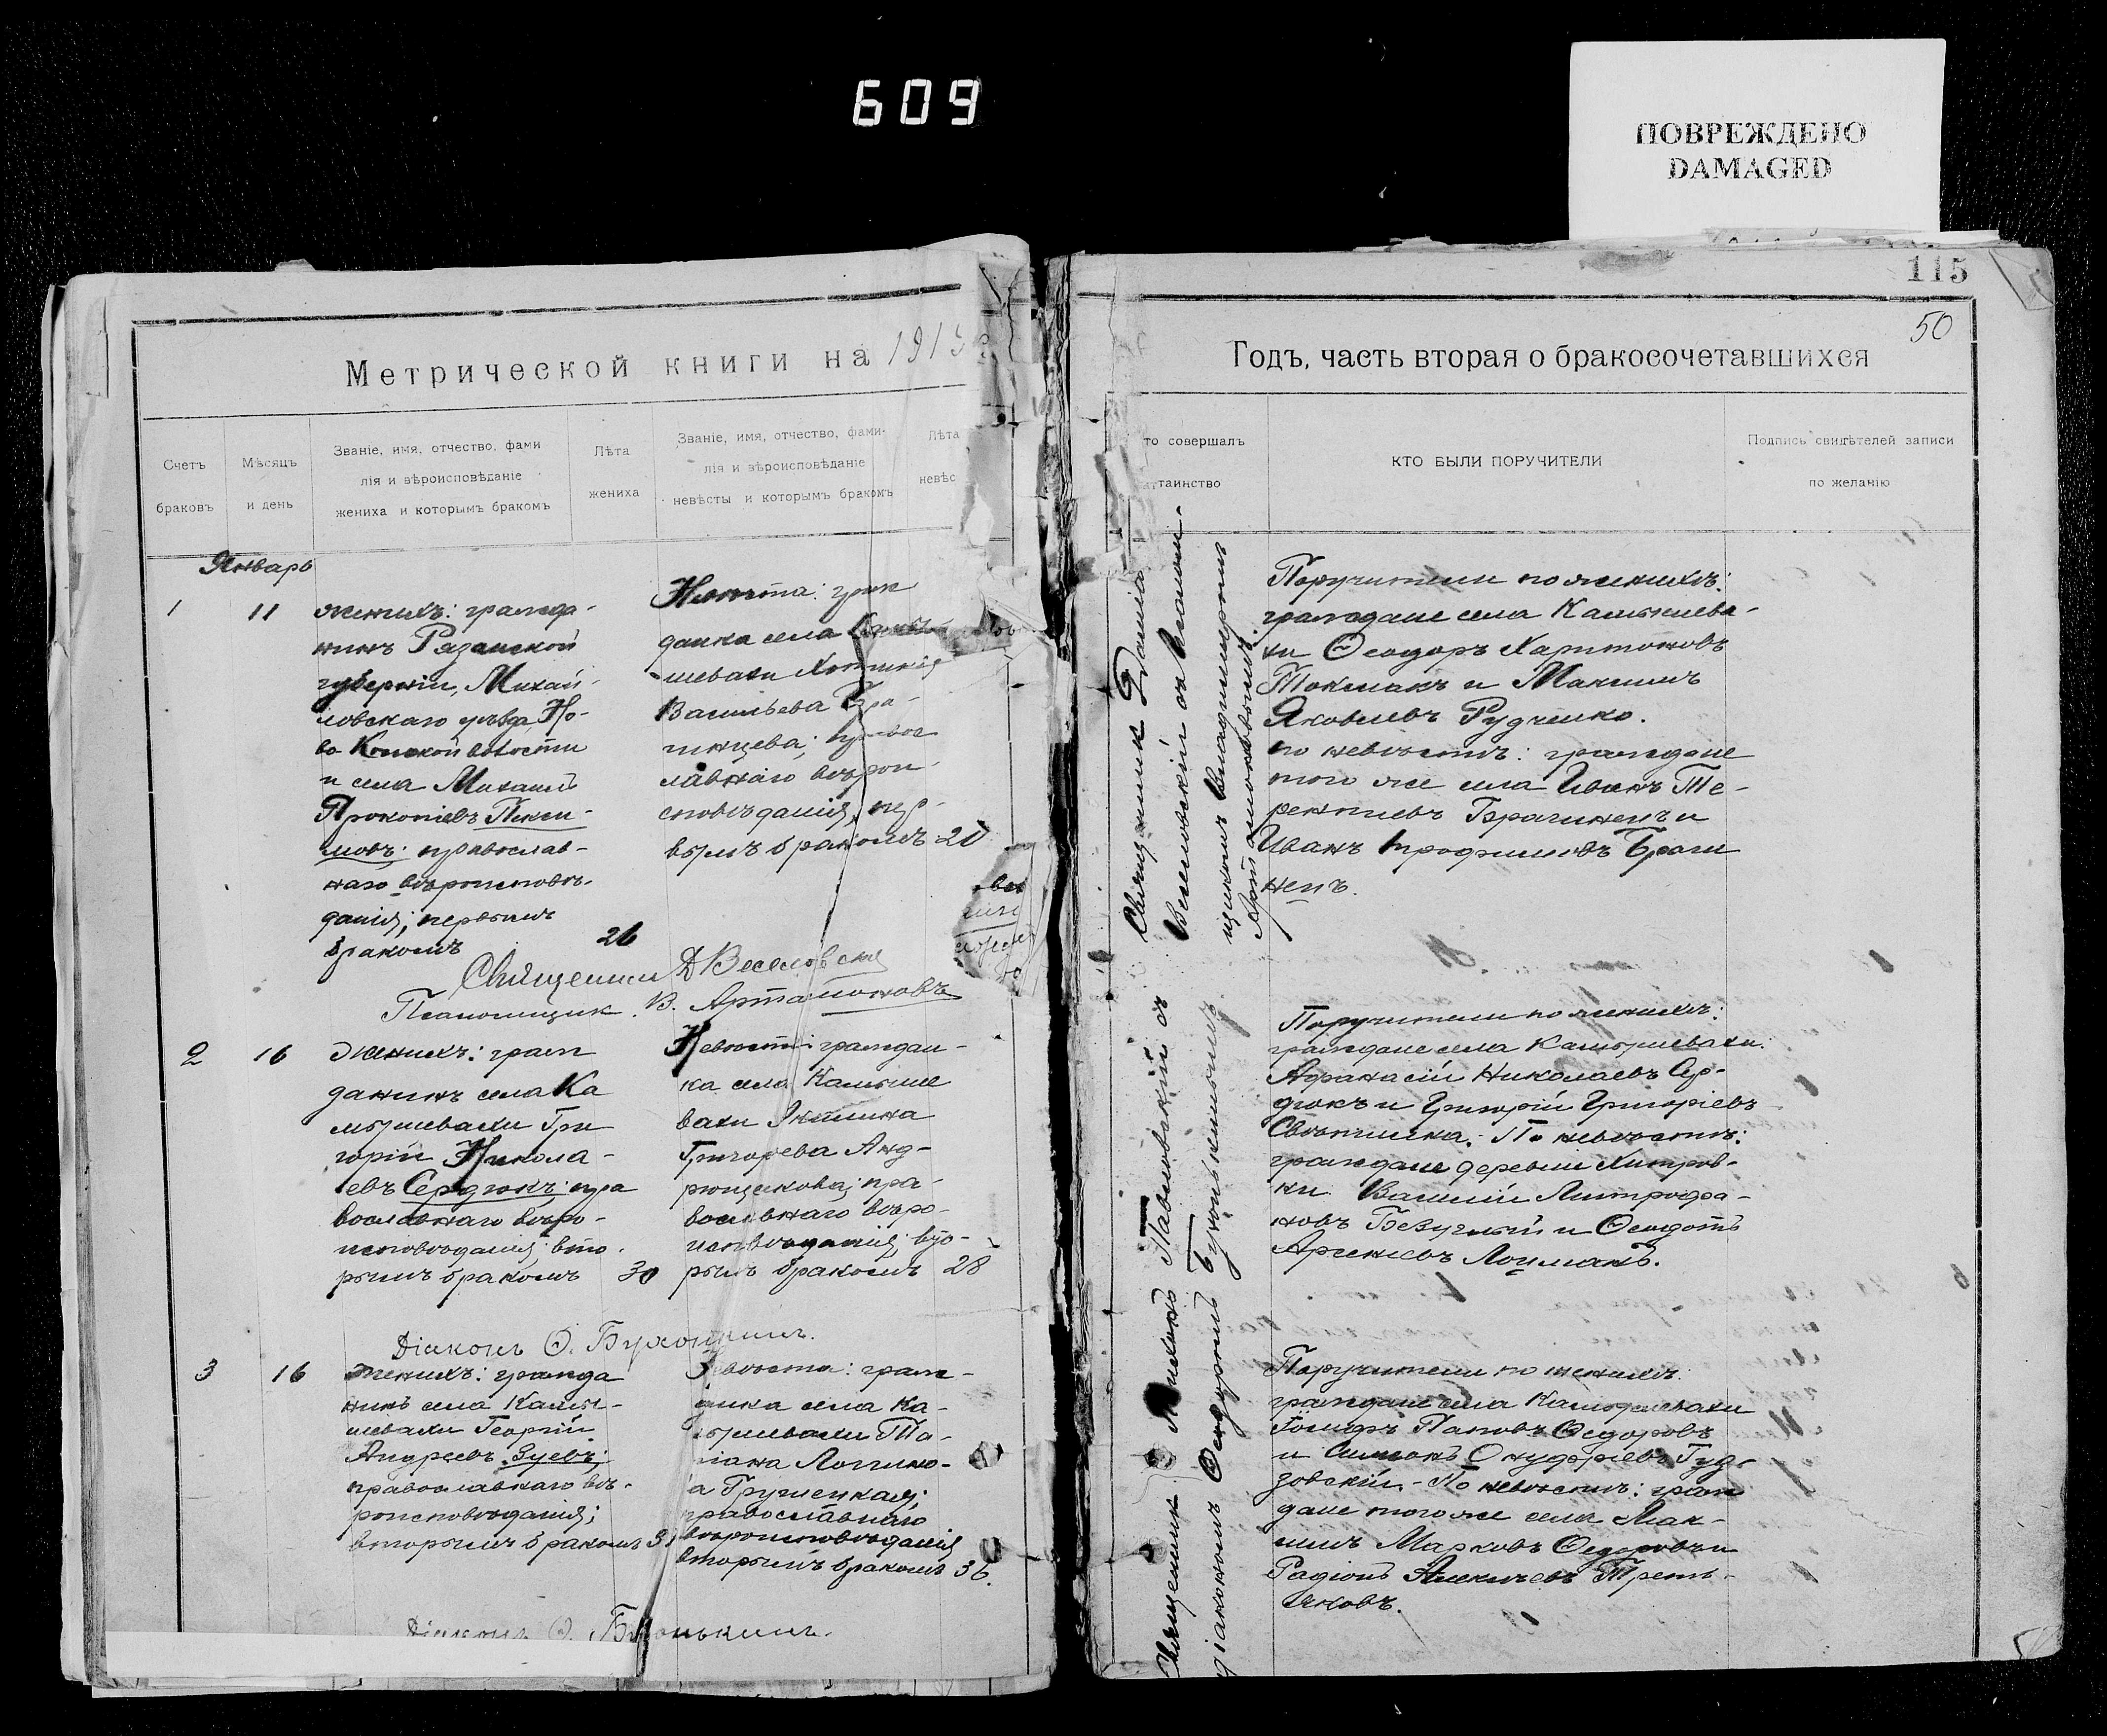 609
ПОВРЕЖДЕНО
DAMAGED
115
50
Метрической книги на 191
Годъ, часть вторая о бракосочетавшихся
Счетъ
браковъ
Мѣсяцъ
и день
Званіе, имя, отчество, фами
лія и вѣроисповѣданіе
жениха и которымъ бракомъ
Лѣта
жениха
Званіе, имя, отчество, фами-
лія и вѣроисповѣданіе
невѣсты и которымъ бракомъ
Лѣта
невѣс
то совершалъ
таинство
КТО БЫЛИ ПОРУЧИТЕЛИ
Подпись свидѣтелей записи
по желанію
Январь
1
11
Женихъ: гражда-
нинъ Рязанской
губерніи, Михай-
ловскаго уѣзда, Но-
во Конской волости
и села Михаилъ
Прокопіевъ
православ-
наго вѣроисповѣ-
данія; первымъ
бракомъ
26
Невѣста: граж
данка села
шевахи
Васильева Бра-
гинцева; правос
лавнаго вѣрои
сповѣданія, пер-
вымъ бракомъ
Священник Даниил
Веселовскій съ псалом-
щикомъ Владиміромъ
Артамоновымъ
Поручители по женихѣ:
граждане села Камышева-
хи Ѳеодоръ Харитоновъ
Токмакъ и Максимъ
Яковлевъ Рудченко.
по невѣстѣ: граждане
того же села Иванъ Те-
рентіевъ Брагинецъ и
Иванъ Трофимовъ Браги
нецъ.
Священник Д Веселовскій
Псаломщик В. Артамоновъ
2
16
Женихъ: граж
данинъ села Ка
мышевахи Гри
горій Никола-
евъ Сердюкъ; пра
вославнаго вѣро-
исповѣданія; вто-
рымъ бракомъ
30
Невѣста: граждан-
ка села Камыше
вахи Акилина
Григорьева Анд-
рющенкова; пра-
вославнаго вѣро-
исповѣданія; вто-
рымъ бракомъ
28
Священник Тихонъ Павловскій съ
діакономъ Ѳеодоромъ
Поручители по женихѣ:
граждане села Камышевахи:
Афанасій Николаевъ Сер-
дюкъ и Григорій Григоріевъ
По невѣстѣ:
граждане деревни Хитров-
ки Василій Митрофа-
новъ Безучный и Ѳеодотъ
Арсеніевъ Лоцманъ.
Діаконъ Ѳ.
3
16
Женихъ: гражда
нинъ села Камы-
шевахи Георгій
Андреевъ Зуевъ;
православнаго вѣ-
роисповѣданія;
вторымъ бракомъ
евѣста: граж-
анка села Ка-
мышевахи Та-
тіана Логгино-
а Грушецкая;
православнаго
вѣроисповѣданія
вторымъ бракомъ 36.
Поручители по женихѣ:
граждане села Камышевахи
Іосифъ Павловъ Ѳедоровъ
и Симеонъ Онуфріевъ Гуд-
зовскій. - По невѣстѣ: граж
дане того же села Мак-
симъ Марковъ Ѳедоровъ и
Радіонъ Алексіевъ Треть-
яковъ.
Діаконъ Ѳ.